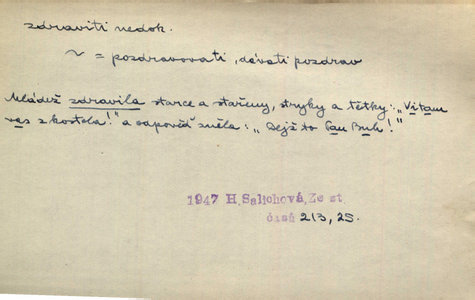 zdraviti nedok.
~ = pozdravovati, dávati pozdrav
Mládež zdravila starce a stařeny, strýky a tětky: „Vítam
vas z kostela!" a odpověď zněla: „Dejž to Pan Buh!"
1947 H. Salichová, Ze st.
časů 213, 25.